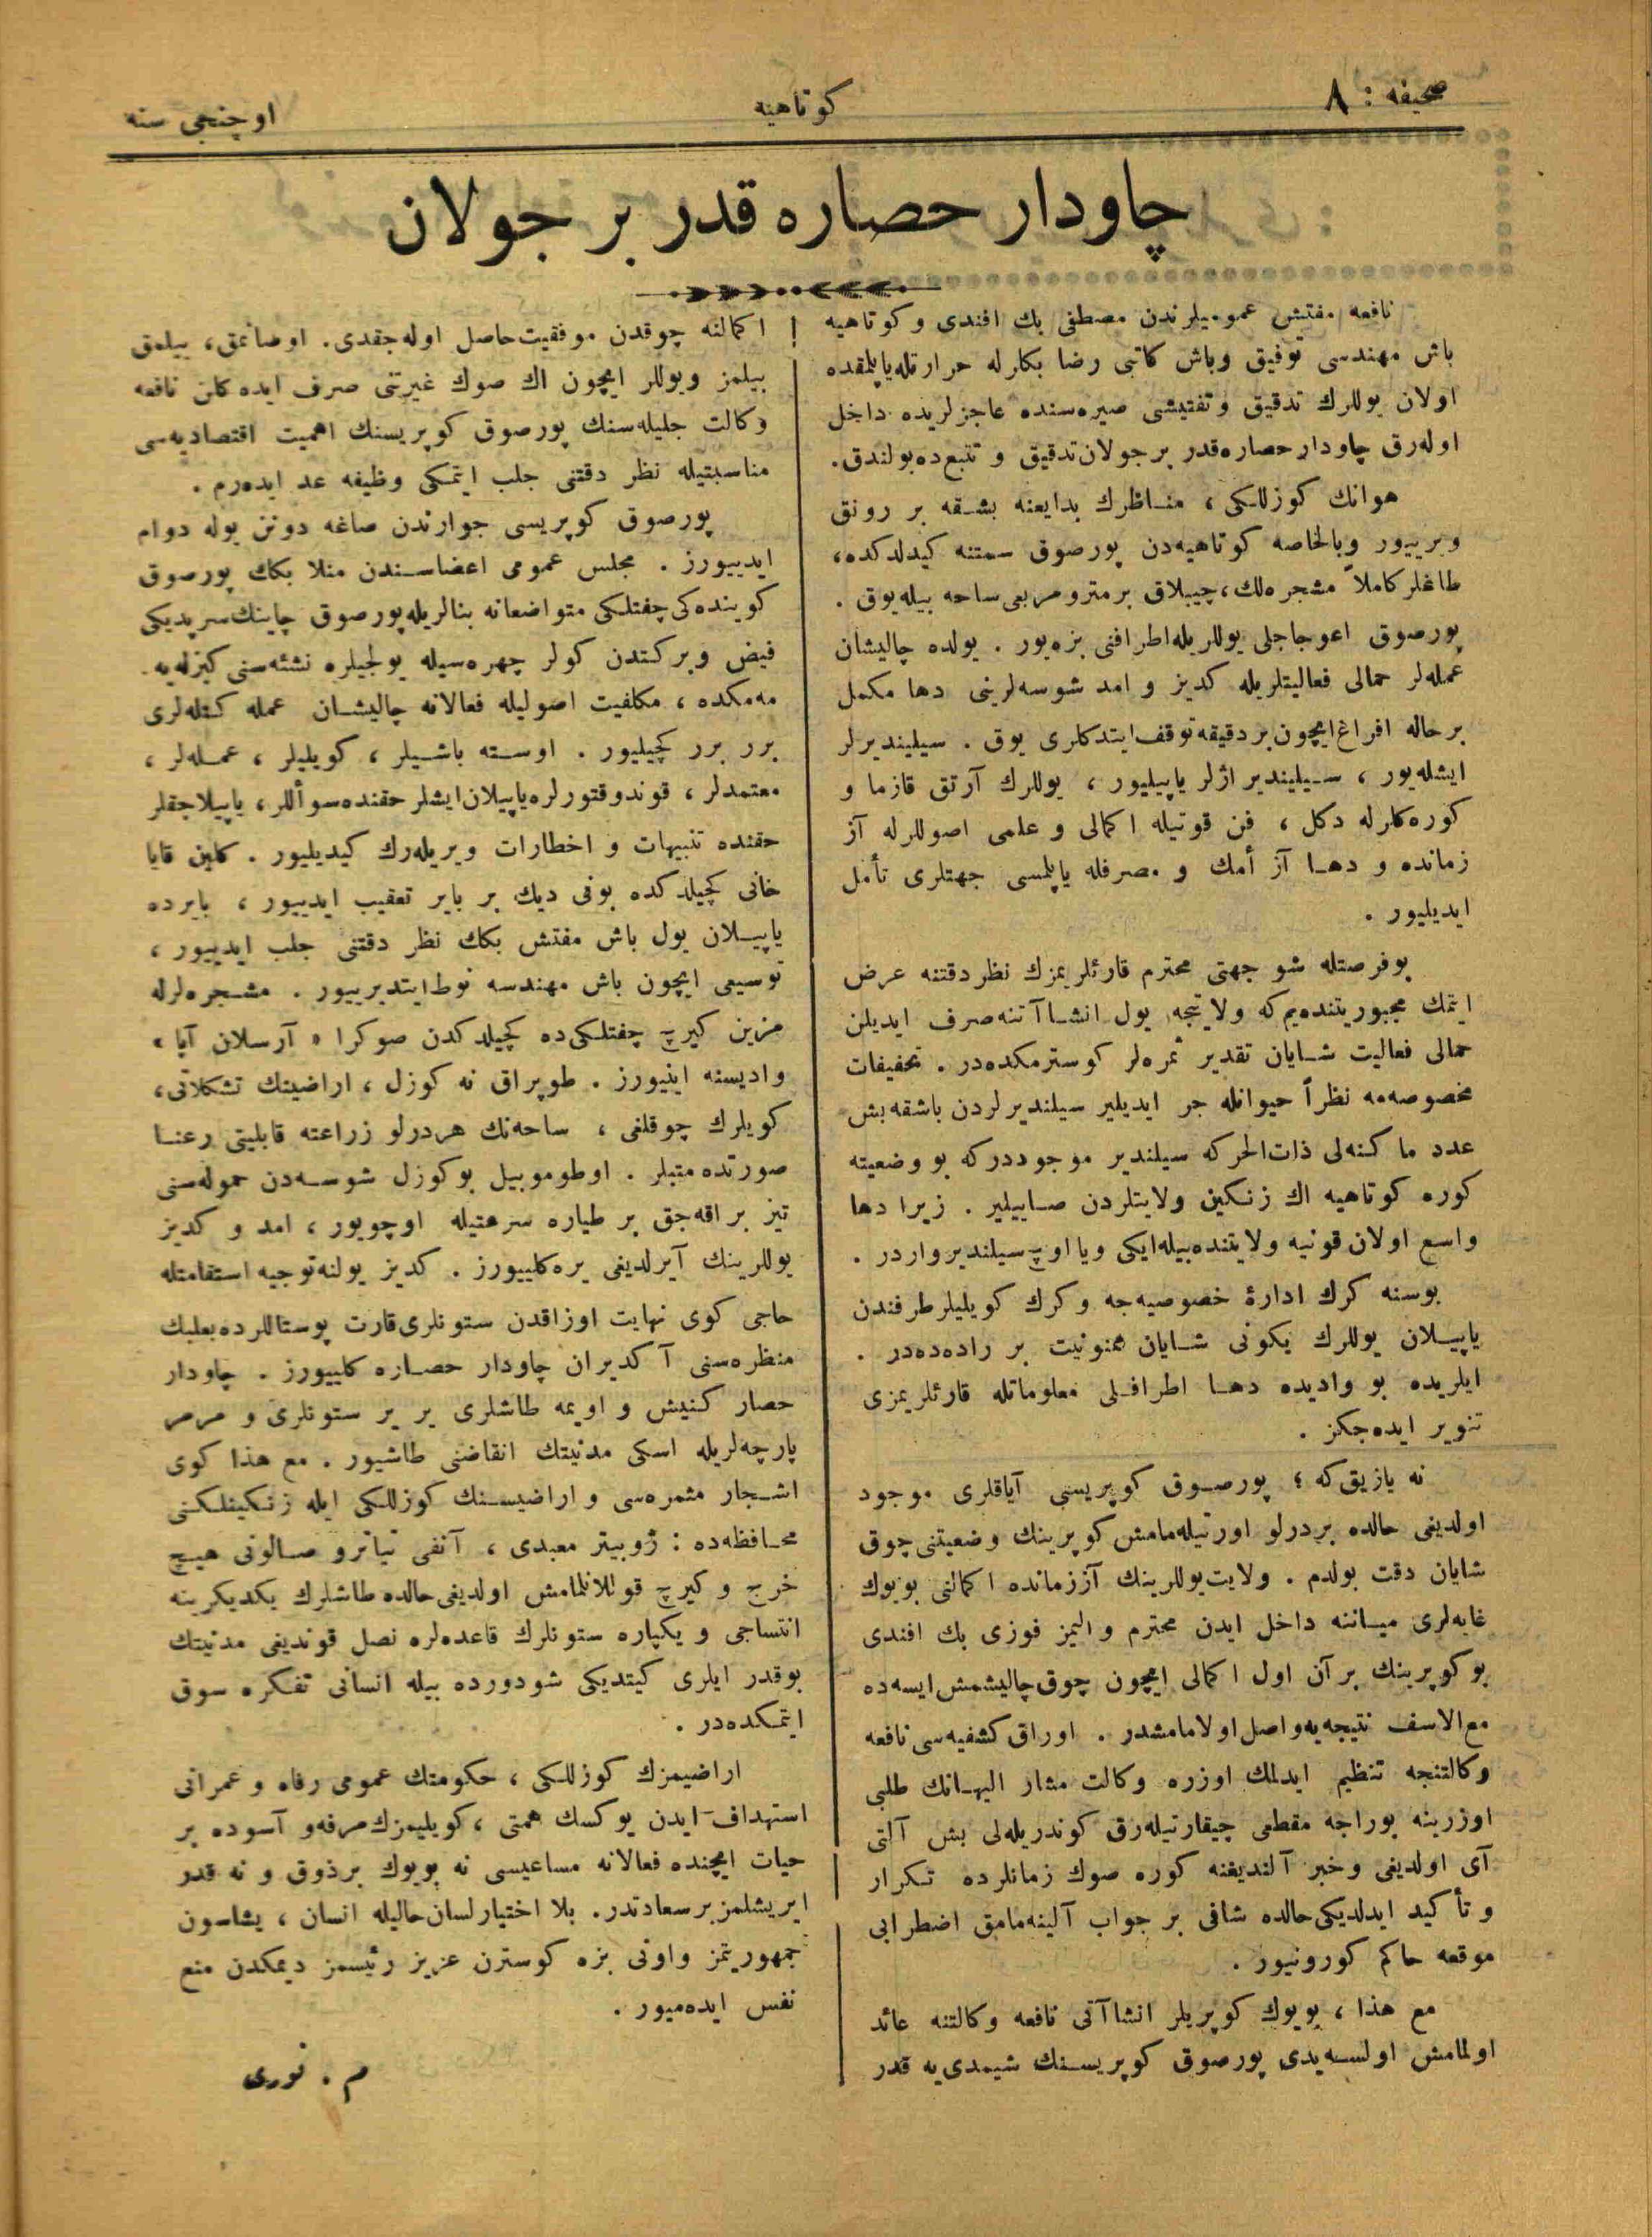 صحيفه : ٨
كوتاهيه
اوچنجى سنه
چاودار حصاره قدر بر جولان
نافعه مفتش عموميلرندن مصطفى بك افندى و كوتاهيه
باش مهندسى توفيق وباش كاتبى رضا بكلرله حرارتله ياپلمقده
اولان يوللرك تدقيق و تفتيشى صيره سنده عاجزلريده داخل
اوله رق چاودار حصاره قدر بر جولان تدقيق و تتبع ده بولندق.
هوانك كوزللكى ، منـاظرك بدايعنه بشـقه بر رونق
ويرييور وبالخاصه كوتاهيه دن پورصوق سمتنه كيدلدكده،
طاغلر كاملاً مشجره لك، چيبلاق بر مترو مربعى ساحه بيله يوق .
پورصوق اعوجاجلى يوللريله اطرافنى بزه يور . يولده چاليشان
عمله لر حمالى فعاليتلريله كديز و امد شوسه لرينى دها مكمل
برحاله افراغ ايچون بر دقيقه توقف ايتدكلرى يوق . سيليندير لر
ايشله يور ، سـيليندير اژلر ياپيليور ، يوللرك آرتق قازما و
كوره كلرله دكل ، فن قوتيله اكمالى و علمى اصوللرله آز
زمانده و دهـا آز أمك و مصرفله ياپلمسى جهتلرى تأمل
ايديليور .
بوفرصتله شو جهتى محترم قارئلريمزك نظر دقتنه عرض
ايتمك مجبوريتنده يم كه ولايتجه يول انشـاآتنه صرف ايديلن
حمالى فعاليت شـايان تقدير ثمره لر كوسترمكده در . تخفيفات
مخصوصه مه نظراً حيوانله جر ايديلير سيلنديرلردن باشقه بش
عدد ماكنه لى ذات الحركه سيلندير موجوددركه بو وضعيته
كوره كوتاهيه اك زنـكين ولايتلردن صـاييلير . زيرا دها
واسع اولان قونيه ولايتنده بيله ايكى ويا اوچ سيلندير واردر .
بوسنه كرك ادارۀ خصوصيه جه و كرك كويليلر طرفندن
ياپيـلان يوللرك يكونى شـايان ممنونيت بر راده ده در .
ايلريده بو واديده دهـا اطرافـلى معلوماتله قارئلريمزى
تنوير ايده جكز .
نه يازيق كه ؛ پورصـوق كوپريسى آياقلرى موجود
اولديغى حالده بردرلو اورتيله مامش كوپرينك وضعيتنى چوق
شايان دقت بولدم . ولايت يوللرينك آز زمانده اكمالنى بويوك
غايه لرى ميـاننه داخل ايدن محترم واليمز فوزى بك افندى
بو كوپرينك بر آن اول اكمالى ايچون چوق چاليشمش ايسه ده
مع الاسف نتيجه يه واصل اولامامشدر . اوراق كشفيه سى نافعه
وكالتنجه تنظيم ايدلمك اوزره وكالت مشار اليهـانك طلبى
اوزرينه بوراجه مقطعى چيقارتيله رق كوندريله لى بش آلتى
آى اولديغى وخبر آلنديغنه كوره صوك زمانلرده تـكرار
و تأكيد ايدلديكى حالده شافى بر جواب آلينه مامق اضطرابى
موقعه حاكم كورونيور .
مع هذا ، بويوك كوپريلر انشاآتى نافعه وكالتنه عائد
اولمامش اولسه يدى پورصوق كوپريسـنك شيمدى يه قدر
اكمالنه چوقدن موفقيت حاصل اوله جقدى . اوصانمق، ييلمق
بيلمز ويوللر ايچون اك صوك غيرتنى صرف ايده كلن نافعه
وكالت جليله سنك پورصوق كوپريسنك اهميت اقتصاديه سى
مناسبتيله نظر دقتنى جلب ايتمـكى وظيفه عد ايده رم .
پورصوق كوپريسى جوارندن صاغه دونن يوله دوام
ايدييورز . مجلس عمومى اعضاسـندن منلا بكك پورصوق
كوينده كى چفتلـكى متواضعانه بنالريله پورصوق چاينك سرپديكى
فيض و بركتدن كولر چهره سيله يولجيلره نشئه سنى كيزله يه -
مه مكده ، مكلفيت اصوليله فعالانه چاليشـان عمله كتله لرى
برر برر كچيليور . اوسـته باشـيلر ، كويليلر ، عمـله لر ،
معتمدلر ، قوندوقتورلره ياپيلان ايشلر حقنده سوأللر، ياپيلاجقلر
حقنده تنبيهات و اخطارات ويريله رك كيديليور . كلين قايا
خانى كچيلدكده بوفى ديك بر باير تعقيب ايدييور ، بايرده
ياپيـلان يول باش مفتش بكك نظر دقتنى جلب ايدييور ،
توسيعى ايچون باش مهندسه نوط ايتديرييور . مشـجره لرله
مزين كيرچ چفتلـكى ده كچيلدكدن صوكرا « آرسلان آپا »
واديسنه اينيورز . طوپراق نه كوزل ، اراضينك تشكلاتى،
كويلرك چوقلغى ، ساحه نك هر درلو زراعته قابليتى رعنـا
صورتده متبلر . اوطوموبيل بوكوزل شوسـه دن حموله سنى
تيز براقه جق بر طياره سرعتيله اوچويور ، امد و كديز
يوللرينك آيرلديغى يره كلييورز . كديز يولنه توجيه استقامتله
حاجى كوى نهايت اوزاقدن ستونلرى قارت پوستاللرده بعلبك
منظره سنى آكديران چاودار حصـاره كلييورز . چاودار
حصار كـنيش و اويمه طاشلرى ير ير ستونلرى و مرمر
پارچه لريله اسكى مدنيتك انقاضنى طاشيور . مع هذا كوى
اشـجار مثمره سى و اراضيسـنك كوزللـكى ايله زنـكينلـكنى
محـافظه ده : ژوپيتر معبدى ، آنفى تياترو صـالونى هيـچ
خرج و كيرچ قوللانلمامش اولديغى حالده طاشلرك يكديكرينه
انتساجى و يكپاره ستونلرك قاعده لره نصل قونديغى مدنيتك
بوقدر ايلرى كيتديكى شودورده بيله انسانى تفـكره سوق
ايتمـكده در .
اراضيمزك كوزللـكى ، حكومتك عمومى رفاه و عمرانى
استهداف ايدن يوكسك همتى ، كويليمزك مرفه و آسوده بر
حيات ايچنده فعالانه مساعيسى نه بويوك بر ذوق و نه قدر
ايريشلمز بر سعادتدر. بلا اختيار لسان حاليله انسان ، يشاسون
جمهوريتمز واونى بزه كوسترن عزيز رئيسمز ديمكدن منع
نفس ايده ميور .
م . نورى